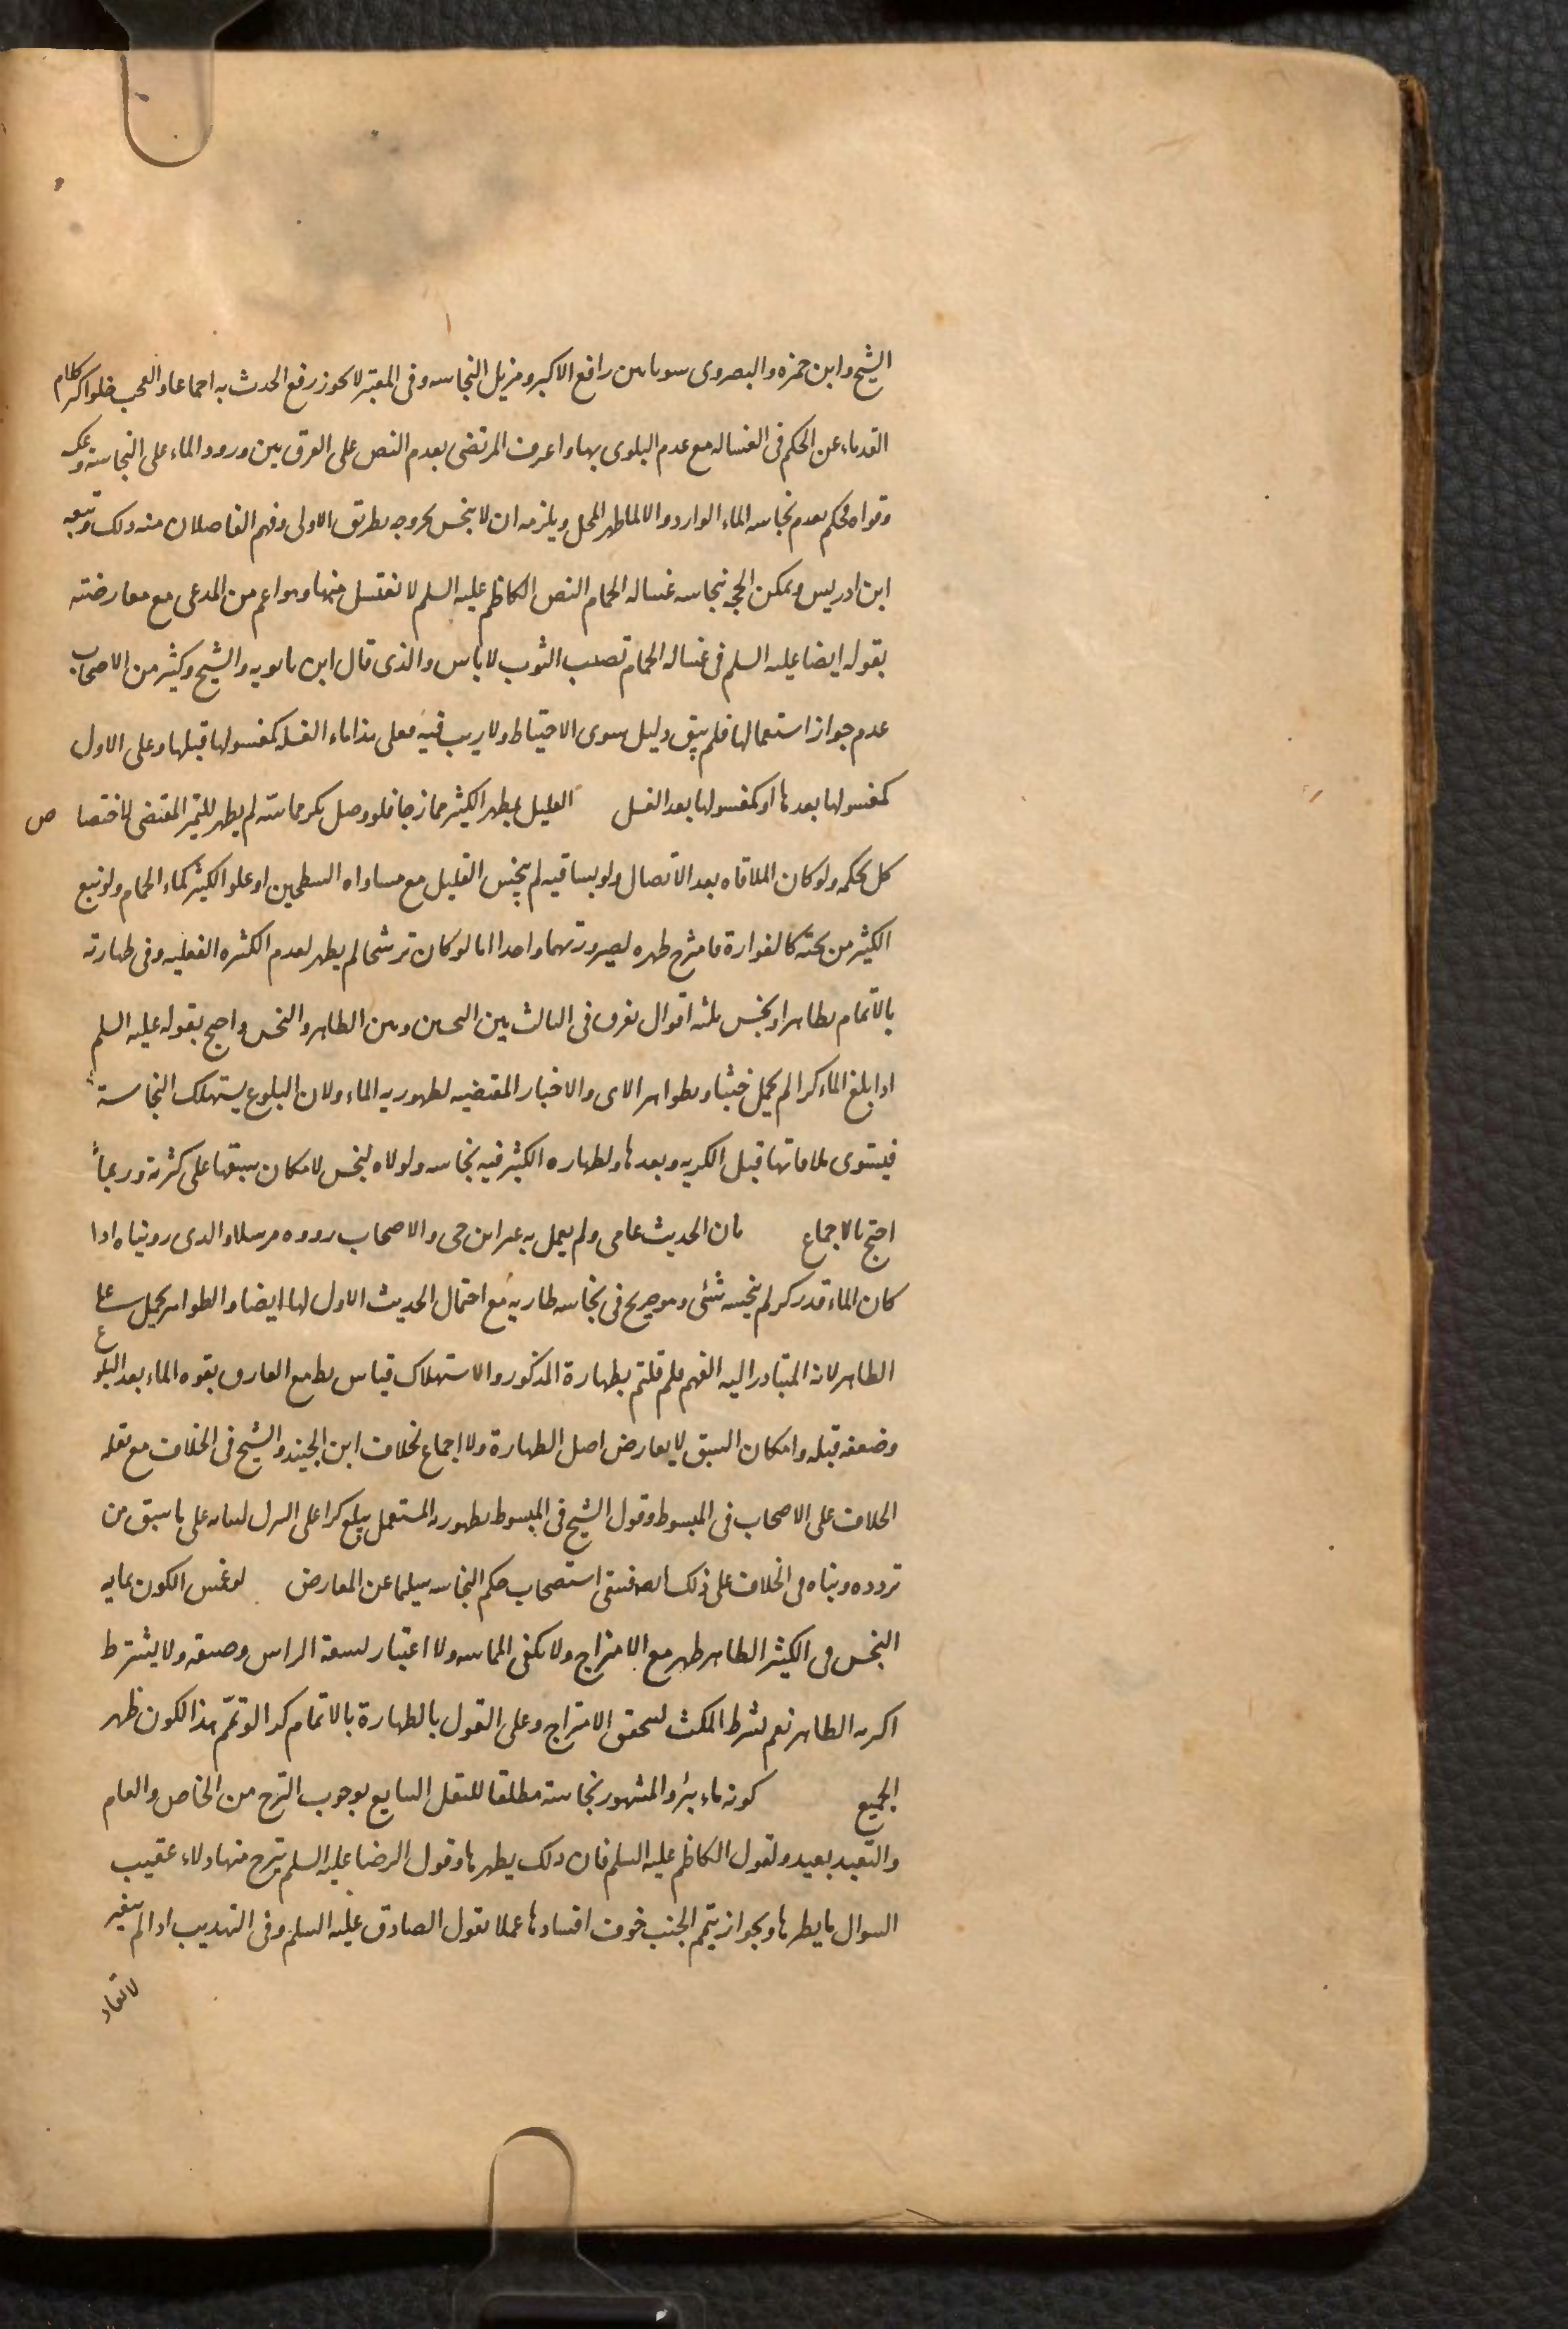 الشیخ وابن حمزه والبصروی سویا بین رافع الاکبر ومزیل النجاسه وفی المعتبر لا یجوز رفع الحدث به اجماعا والعجب خلو اکثر کلام
القدماء عن الحکم فی الغساله مع عدم البلوی بها واعرف المرتضی بعدم النص علی الفرق بین ورود الماء علی النجاسة وعکسه
وقواه فحکم بعدم نجاسه الماء الوارد والا لما طهر المحل ویلزمه ان لا ینجس بخروجه بطریق الاولی وفهم الفاضلان منه ذلک وتبعه
ابن ادریس ویمکن الحجه نجاسه غساله الحمام النص الکاظم علیه السلم لا تغتسل منها وهو اعم من المدعی مع معارضته
بقوله ایضا علیه السلم فی غساله الحمام تصیب الثوب لا باس والذی قال ابن بابویه والشیخ وکثیر من الاصحاب
عدم جواز استعمالها فلم یبق دلیل سوی الاحتیاط ولا ریب فیه فعلی هذا ماء الغسله کمغسولها قبلها وعلی الاول
کمغسولها بعدها او کمغسولها بعد الغسل القلیل یطهر الکثیر ممازجا فلو وصل بکر مماسّه لم یطهر للتمیز المقتضی لاختصاص
کل بحکمه ولو کان الملاقاه بعد الاتصال ولو بساقیه لم ینجس القلیل مع مساواه السطحین او علو الکثیر کماء الحمام ولو نبع
الکثیر من تحته کالفوارة فامتزج طهره لصیرورتهما واحدا اما لو کان ترشحا لم یطهر لعدم الکثره الفعلیه وفی طهارته
بالاتمام بطاهر او نجس ثلثه اقوال یفرق فی الثالث بین النجسین وبین الطاهر والنجس واحتج بقوله علیه السلم
اذا بلغ الماء کرا لم یحمل خبثا وبظواهر الای والاخبار المقتضیه لطهوریه الماء ولان البلوغ یستهلک النجاسة
فیستوی ملاقاتها قبل الکریه وبعدها ولطهاره الکثیر فیه نجاسه ولولاه لنجس لامکان سبقها علی کثرته وربما
احتج بالاجماع بان الحدیث عامی ولم یعمل به غیر ابن حی والاصحاب رووه مرسلا والذی رویناه اذا
کان الماء قدر کر لم ینجسه شئی وهو صریح فی نجاسه طاریه مع احتمال الحدیث الاول لها ایضا والظواهر یحمل علی
الطاهر لانه المتبادر الیه الفهم فلم قلتم بطهارة المذکور والاستهلاک قیاس بط مع الفارق بقوه الماء بعد البلوغ
وضعفه قبله وامکان السبق لا یعارض اصل الطهارة ولا اجماع لخلاف ابن الجنید والشیخ فی الخلاف مع نقله
الخلاف علی الاصحاب فی المبسوط وقول الشیخ فی المبسوط بطهوریه المستعمل یبلغ کرا علی التنزل لبنائه علی ما سبق من
تردده وبناه فی الخلاف علی ذلک ایضا فیبقی استصحاب حکم النجاسه سلیما عن المعارض لو غمس الکوز بمایه
النجس فی الکثیر الطاهر طهر مع الامتزاج ولا تکفی المماسه ولا اعتبار لسعة الراس وضیقه ولا یشترط
اکثریه الطاهر نعم یشرط المکث لیتحقق الامتزاج وعلی القول بالطهارة بالاتمام کذا لو تمّم هذا الکوز طهر
الجمیع کونه ماء بئر والمشهور نجاسته مطلقا للنقل الشایع بوجوب النزح من الخاص والعام
والتعبد بعید ولقول الکاظم علیه السلم فان ذلک یطهرها وقول الرضا علیه السلم ینزح منها دلاء عقیب
السوال ما یطهرها وبجواز تیمم الجنب خوف افسادها عملا بقول الصادق علیه السلم وفی التهذیب اذا لم یتغیر
لا تعاد